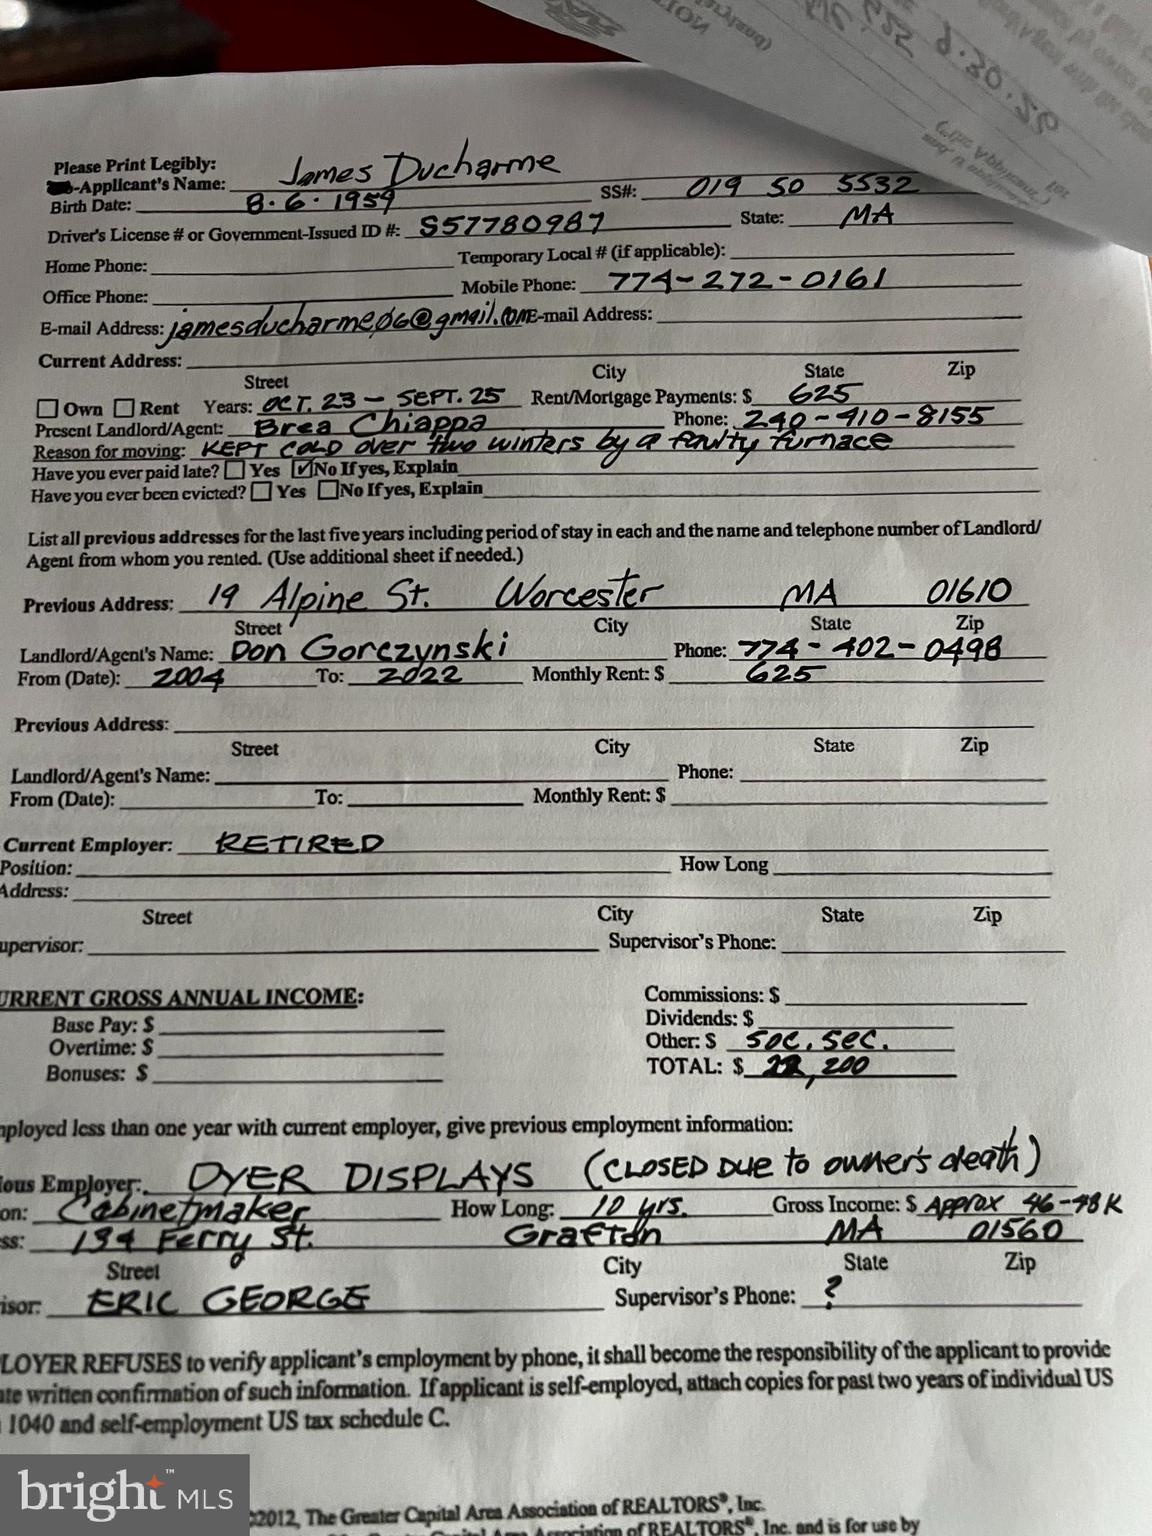 Please Print Legibly:
-Applicant's Name: James Ducharme
Birth Date: 8.6.1959 SS#: 019 50 5532
Driver's License # or Government-Issued ID #: S57780987 State: MA
Home Phone: Temporary Local # (if applicable):
Office Phone: Mobile Phone: 774-272-0161
E-mail Address: jamesducharme06@gmail.com E-mail Address:
Current Address:
Street City State Zip
Own Rent Years: OCT. 23 - SEPT. 25 Rent/Mortgage Payments: $ 625
Present Landlord/Agent: Brea Chiappa Phone: 240-410-8155
Reason for moving: KEPT COLD over two winters by a faulty furnace
Have you ever paid late? Yes ✓ No If yes, Explain
Have you ever been evicted? Yes No If yes, Explain
List all previous addresses for the last five years including period of stay in each and the name and telephone number of Landlord/
Agent from whom you rented. (Use additional sheet if needed.)
Previous Address: 19 Alpine St. Worcester MA 01610
Street City State Zip
Landlord/Agent's Name: Don Gorczynski Phone: 774-402-0498
From (Date): 2004 To: 2022 Monthly Rent: $ 625
Previous Address:
Street City State Zip
Landlord/Agent's Name: Phone:
From (Date): To: Monthly Rent: $
Current Employer: RETIRED
Position: How Long
Address:
Street City State Zip
upervisor: Supervisor's Phone:
URRENT GROSS ANNUAL INCOME: Commissions: $
Base Pay: $ Dividends: $
Overtime: $ Other: $ SOC. SEC.
Bonuses: $ TOTAL: $ 22,200
mployed less than one year with current employer, give previous employment information:
ious Employer: DYER DISPLAYS (CLOSED DUE to owner's death)
on: Cabinetmaker How Long: 10 yrs. Gross Income: $ Approx 46-48K
ss: 134 Ferry St. Grafton MA 01560
Street City State Zip
isor: ERIC GEORGE Supervisor's Phone: ?
LOYER REFUSES to verify applicant's employment by phone, it shall become the responsibility of the applicant to provide
ate written confirmation of such information. If applicant is self-employed, attach copies for past two years of individual US
1040 and self-employment US tax schedule C.
bright™ MLS
©2012, The Greater Capital Area Association of REALTORS®, Inc.
Association of REALTORS®, Inc. and is for use by